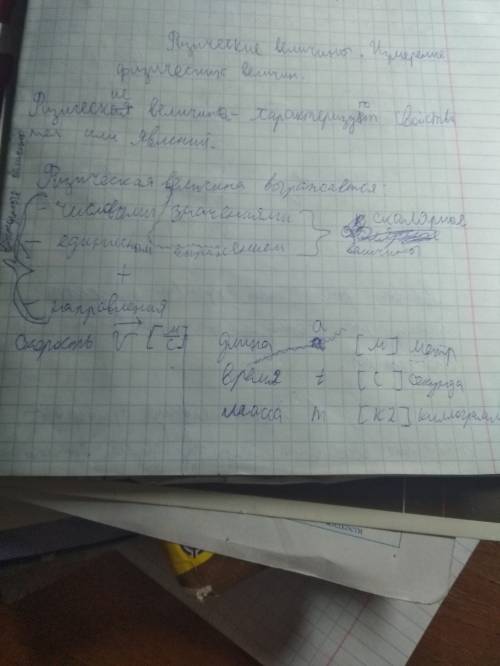 Физические величины. Измерение
физических величин.
Физические величина - характеризуют свойства
тел или явлений.
Физическая величина выражается:
- числовыми значениями
скалярная
- единичном выражением
величины
+
- направления
Скорость V [м/с]
длина a [м] метр
время t [с] секунда
масса m [кг] киллограмм